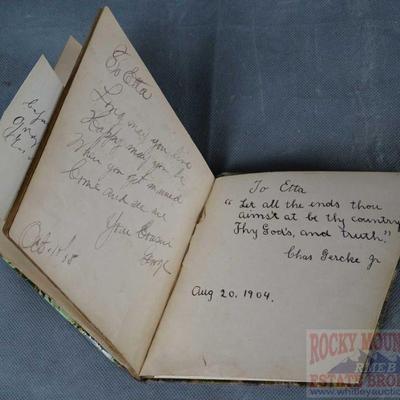 To Etta
Long may you live
Happy may you be
When you get married
Come and see me
Your Cousin
Oct.
To Etta
"Let all the ends thou
aimst at be thy country
Thy God's, and truth."
Chas Gercke Jr
Aug 20, 1904.
ROCKY MOUN
RMEB
ESTATE BROK
www.whitleyauctio